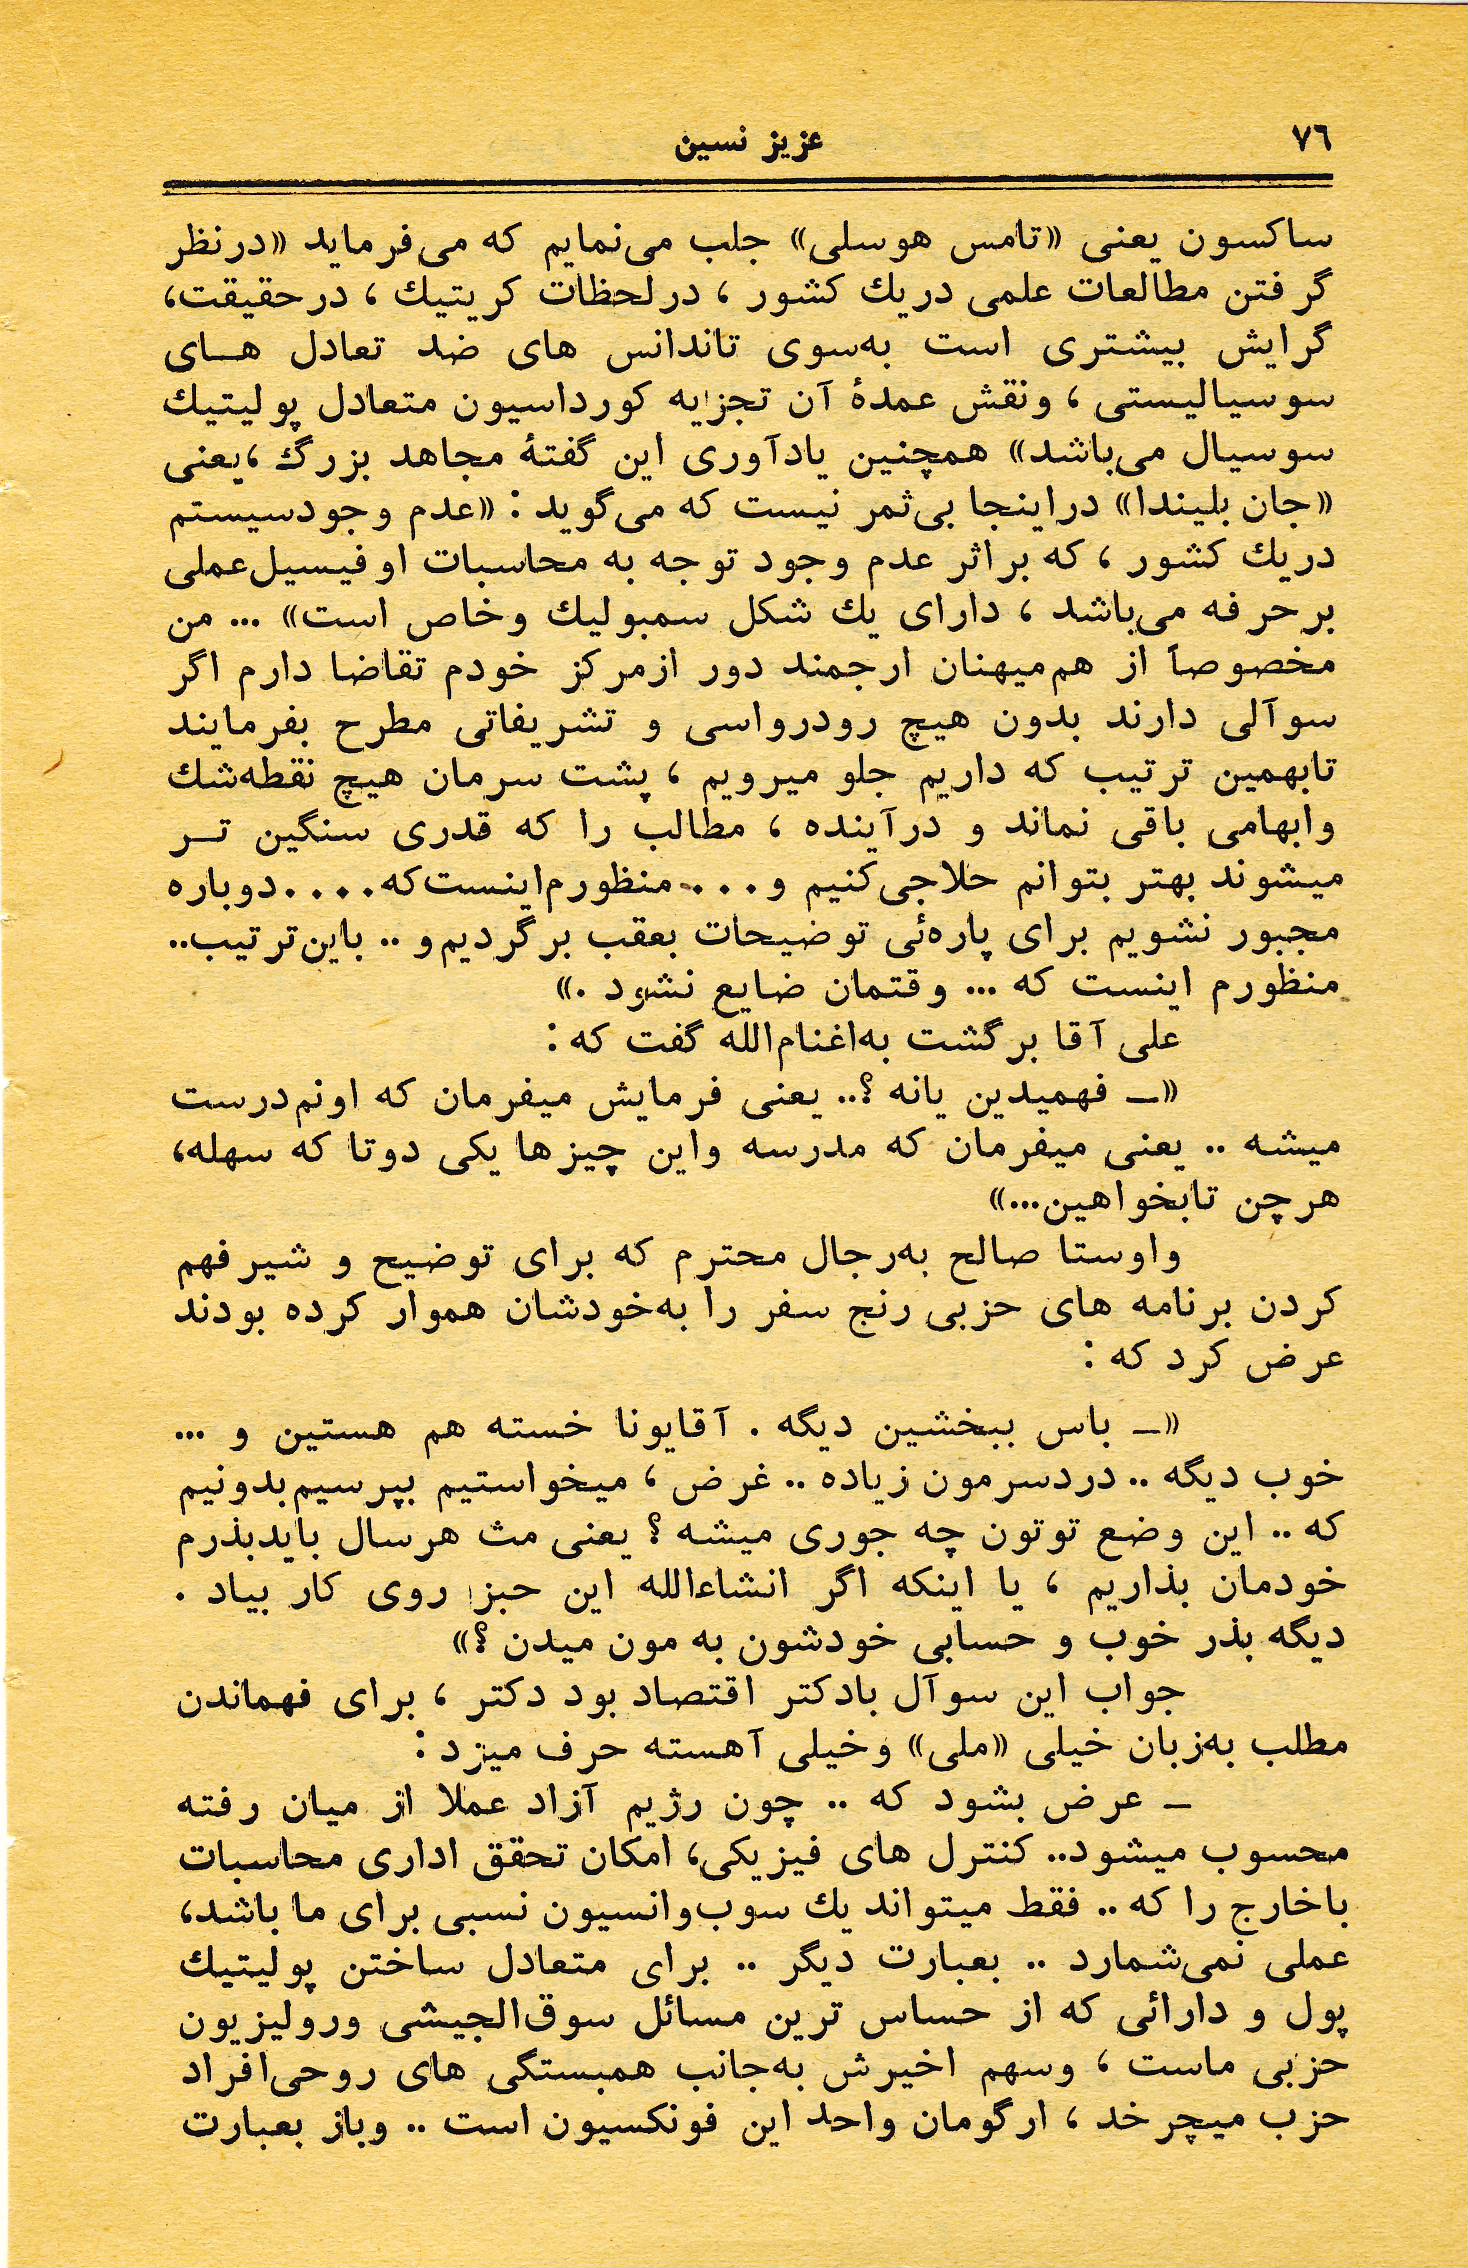 ٧٦
عزیز نسین
ساکسون یعنی «تامس هوسلی» جلب می‌نمایم که می‌فرماید «درنظر
گرفتن مطالعات علمی دریك کشور ، درلحظات کریتیك ، درحقیقت،
گرایش بیشتری است به‌سوی تاندانس های ضد تعادل هـــای
سوسیالیستی ، ونقش عمدهٔ آن تجزیه کورداسیون متعادل پولیتیك
سوسیال می‌باشد» همچنین یادآوری این گفتهٔ مجاهد بزرگ ،یعنی
«جان بلیندا» دراینجا بی‌ثمر نیست که می‌گوید : «عدم وجودسیستم
دریك کشور ، که براثر عدم وجود توجه به محاسبات اوفیسیل‌عملی
برحرفه می‌باشد ، دارای یك شکل سمبولیك وخاص است» ... من
مخصوصاً از هم‌میهنان ارجمند دور ازمرکز خودم تقاضا دارم اگر
سوآلی دارند بدون هیچ رودرواسی و تشریفاتی مطرح بفرمایند
تابهمین ترتیب که داریم جلو میرویم ، پشت سرمان هیچ نقطه‌شك
وابهامی باقی نماند و درآینده ، مطالب را که قدری سنگین تـــر
میشوند بهتر بتوانم حلاجی‌کنیم و . . . منظورم‌اینست‌که . . . . دوباره
مجبور نشویم برای پاره‌ئی توضیحات بعقب برگردیم‌و .. باین‌ترتیب..
منظورم اینست که ... وقتمان ضایع نشود .»
علی آقا برگشت به‌اغنام‌الله گفت که :
«ــ فهمیدین یانه ؟.. یعنی فرمایش میفرمان که اونم‌درست
میشه .. یعنی میفرمان که مدرسه واین چیزها یکی دوتا که سهله،
هرچن تابخواهین...»
واوستا صالح به‌رجال محترم که برای توضیح و شیرفهم
کردن برنامه های حزبی رنج سفر را به‌خودشان هموار کرده بودند
عرض کرد که :
«ــ باس ببخشین دیگه . آقایونا خسته هم هستین و ...
خوب دیگه .. دردسرمون زیاده .. غرض ، میخواستیم بپرسیم‌بدونیم
که .. این وضع توتون چه جوری میشه ؟ یعنی مث هرسال بایدبذرم
خودمان بذاریم ، یا اینکه اگر انشاءالله این حبزا روی کار بیاد .
دیگه بذر خوب و حسابی خودشون به مون میدن ؟»
جواب این سوآل بادکتر اقتصاد بود دکتر ، برای فهماندن
مطلب به‌زبان خیلی «ملی» وخیلی آهسته حرف میزد :
ــ عرض بشود که .. چون رژیم آزاد عملا از میان رفته
محسوب میشود.. کنترل های فیزیکی، امکان تحقق اداری محاسبات
باخارج را که .. فقط میتواند یك سوب‌وانسیون نسبی برای ما باشد،
عملی نمی‌شمارد .. بعبارت دیگر .. برای متعادل ساختن پولیتیك
پول و دارائی که از حساس ترین مسائل سوق‌الجیشی ورولیزیون
حزبی ماست ، وسهم اخیرش به‌جانب همبستگی های روحی‌افراد
حزب میچرخد ، ارگومان واحد این فونکسیون است .. وباز بعبارت